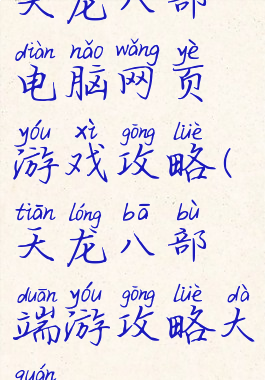 天龙八部
diàn nǎo wǎng yè
电脑网页
yóu xì gōng lüè
游戏攻略(
tiān lóng bā bù
天龙八部
duān yóu gōng lüè dà
端游攻略大
quán